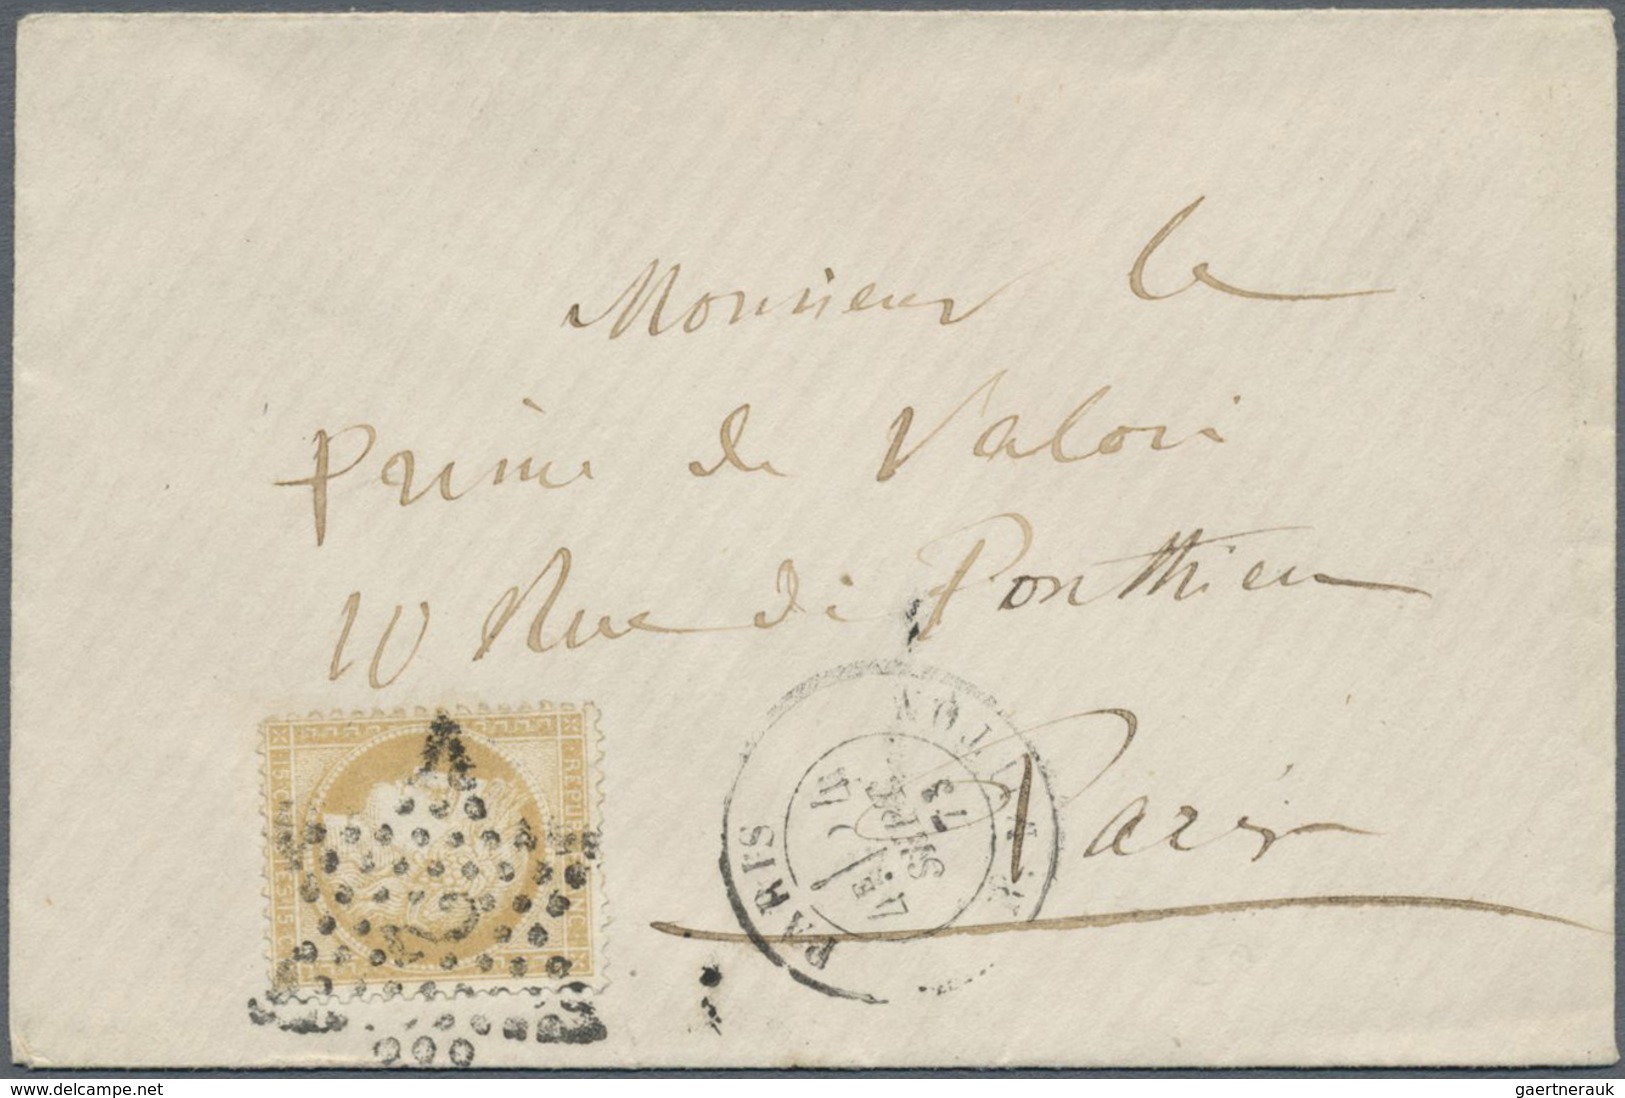 Monsieur le
Prince de Valori
10 Rue de Ponthieu
Paris
REPUB. FRANC.
15 C.
15
PARIS
4E
SEPT.
73
www.delcampe.net
gaertnerauk